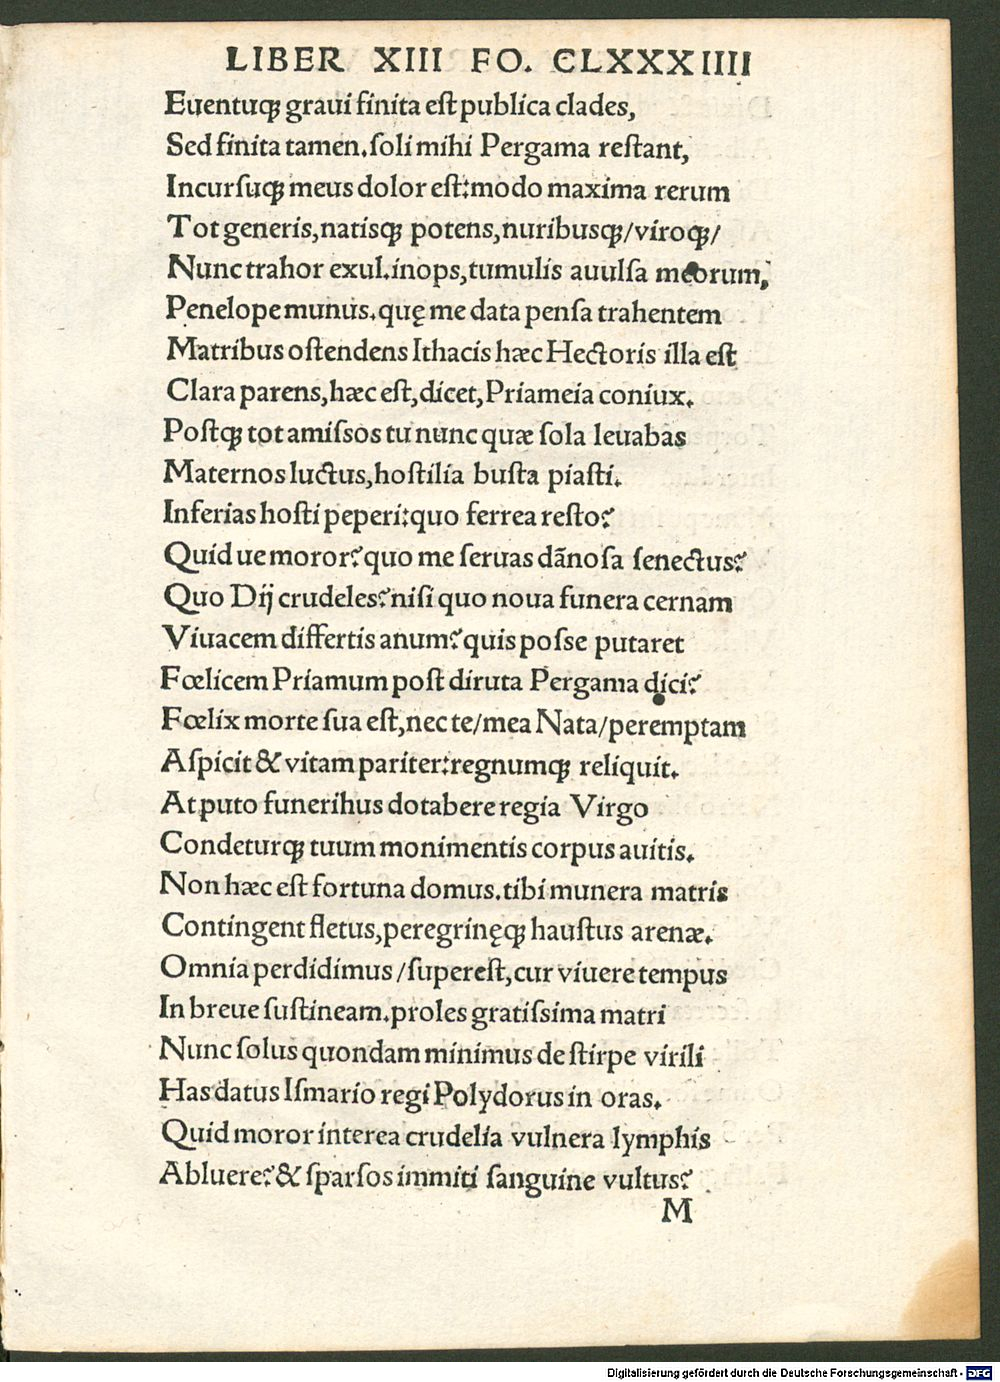 LIBER XIII FO. CLXXXIIII
Euentuqꝫ graui finita eſt publica clades,
Sed finita tamen. ſoli mihi Pergama reſtant,
Incurſuqꝫ meus dolor eſt: modo maxima rerum
Tot generis, natisqꝫ potens, nuribusqꝫ/viroqꝫ/
Nunc trahor exul. inops, tumulis auulſa meorum,
Penelope munus. quę me data penſa trahentem
Matribus oſtendens Ithacis hæc Hectoris illa eſt
Clara parens, hæc eſt, dicet, Priameia coniux.
Poſtqꝫ tot amiſſos tu nunc quæ ſola leuabas
Maternos luctus, hoſtilia buſta piaſti.
Inferias hoſti peperi: quo ferrea reſto?
Quid ue moror? quo me ſeruas dãnoſa ſenectus?
Quo Dij crudeles? niſi quo noua funera cernam
Viuacem differtis anum? quis poſſe putaret
Fœlicem Priamum poſt diruta Pergama dici?
Fœlix morte ſua eſt, nec te/mea Nata/peremptam
Aſpicit & vitam pariter: regnumqꝫ reliquit.
At puto funerihus dotabere regia Virgo
Condeturqꝫ tuum monimentis corpus auitis.
Non hæc eſt fortuna domus. tibi munera matris
Contingent fletus, peregrinęqꝫ hauſtus arenæ.
Omnia perdidimus/ſupereſt, cur viuere tempus
In breue ſuſtineam. proles gratiſſima matri
Nunc ſolus quondam minimus de ſtirpe virili
Has datus Iſmario regi Polydorus in oras.
Quid moror interea crudelia vulnera lymphis
Abluere? & ſparſos immiti ſanguine vultus?
M
Digitalisierung gefördert durch die Deutsche Forschungsgemeinschaft - DFG